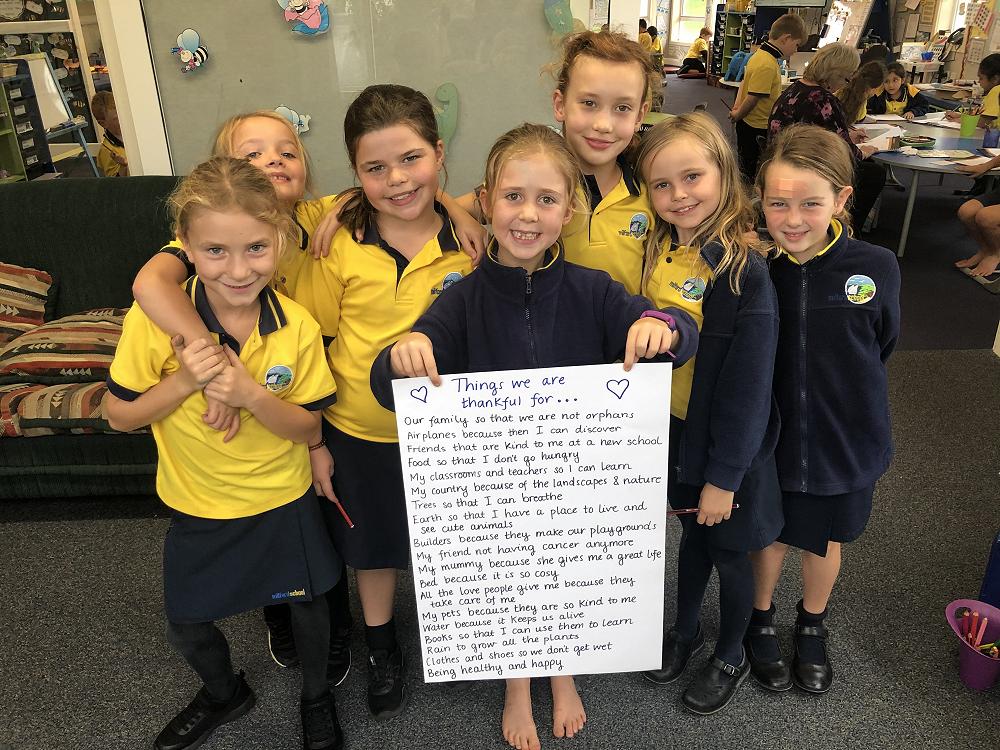 Things we are
thankful for...
Our family so that we are not orphans
Airplanes because then I can discover
Friends that are kind to me at a new school
Food so that I don't go hungry
My classrooms and teachers so I can learn
My country because of the landscapes & nature
Trees so that I can breathe
Earth so that I have a place to live and
see cute animals
Builders because they make our playgrounds
My friend not having cancer anymore
My mummy because she gives me a great life
Bed because it is so cosy
All the love people give me because they
take care of me
My pets because they are so kind to me
Water because it keeps us alive
Books so that I can use them to learn
Rain to grow all the plants
Clothes and shoes so we don't get wet
Being healthy and happy